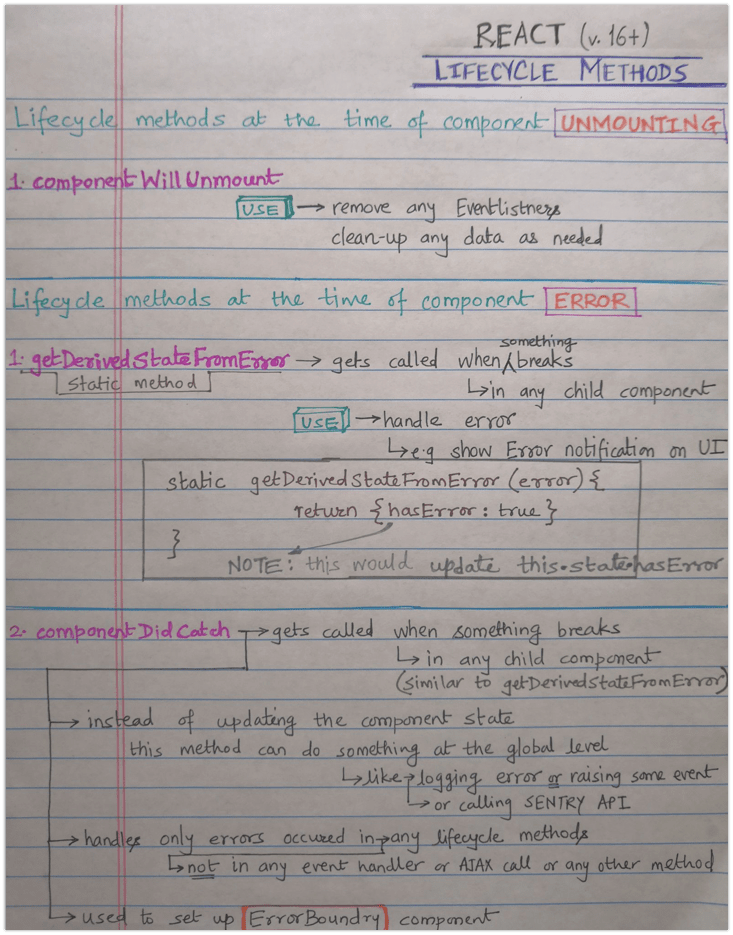 REACT (v. 16+)
LIFECYCLE METHODS
Lifecycle methods at the time of component UNMOUNTING
1. componentWillUnmount
USE → remove any Eventlistners
clean-up any data as needed
Lifecycle methods at the time of component ERROR
1. getDerivedStateFromError → gets called when something breaks
static method
↳ in any child component
USE → handle error
↳ e.g show Error notification on UI
static getDerivedStateFromError (error) {
return {hasError: true}
}
NOTE: this would update this.state.hasError
2. componentDidCatch → gets called when something breaks
↳ in any child component
(similar to getDerivedStateFromError)
→ instead of updating the component state
this method can do something at the global level
↳ like → logging error or raising some event
↳ or calling SENTRY API
→ handles only errors occured in → any lifecycle methods
↳ not in any event handler or AJAX call or any other method
→ used to set up ErrorBoundry component